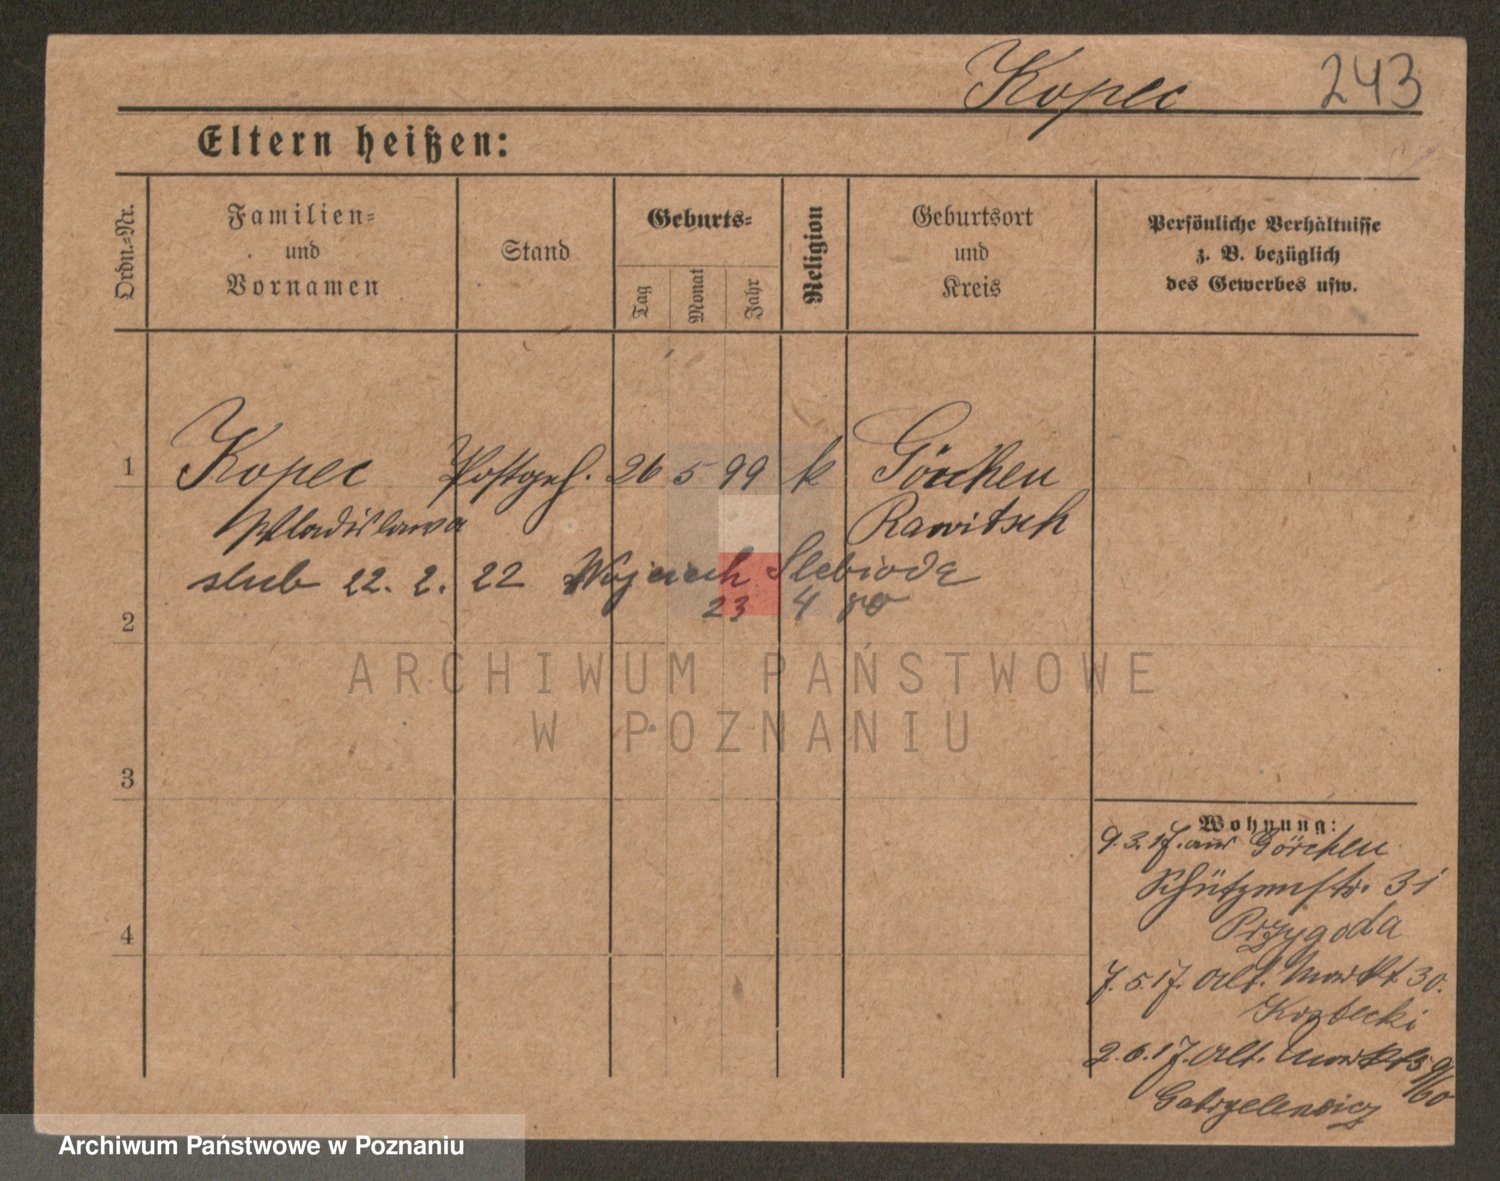 Kopec 243
Eltern heißen:
Ordn.=Nr.
Familien=
und
Vornamen
Stand
Geburts=
Tag
Monat
Jahr
Religion
Geburtsort
und
Kreis
Persönliche Verhältnisse
z. B. bezüglich
des Gewerbes usw.
1 Kopec Postgeh. 26 5 99 k Görchen
Wladislawa Rawitsch
slub 22. 2. 22 Wojciech Slebioda
2 23 4 80
ARCHIWUM PAŃSTWOWE
W POZNANIU
3
Wohnung:
9. 3. 17. aus Görchen
Schützenstr. 31
Przygoda
4
7. 5. 17. Alt. Markt 30.
2. 6. 17. Alt. Markt 59/60
Gabryelewicz
Archiwum Państwowe w Poznaniu